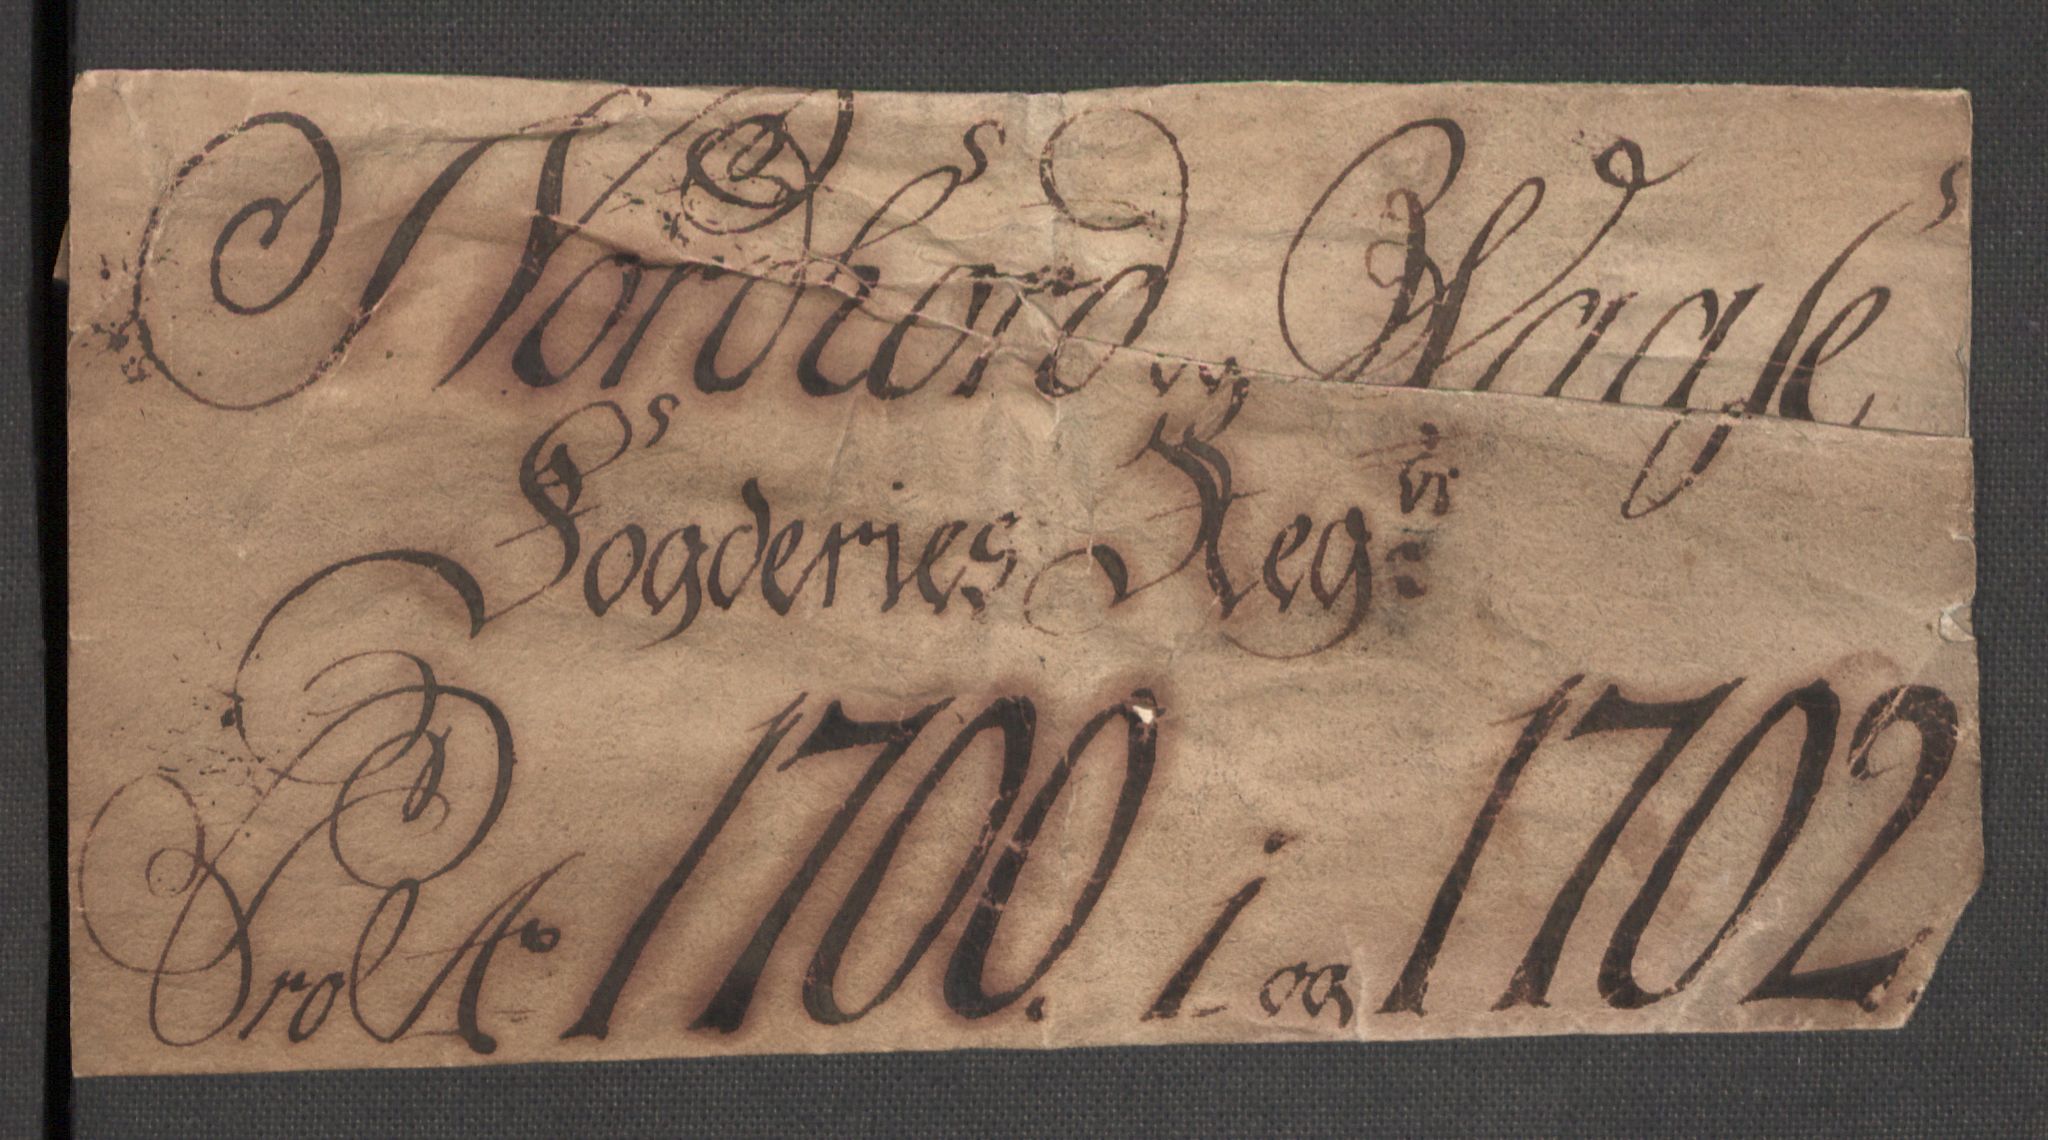 Nordhord^s og Wags^s
Fogderies Reg^vi:
Pro A^o 1700. 1 og 1702